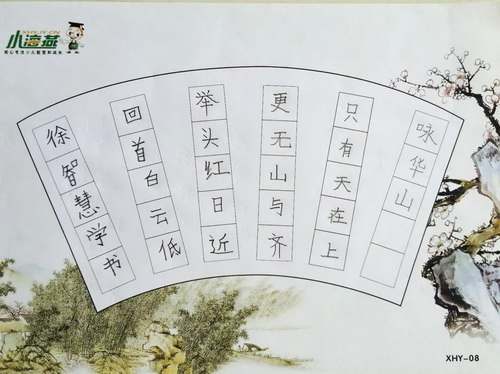 小演燕
XHYJY.CN
咏华山
只有天在上
更无山与齐
举头红日近
回首白云低
徐智慧学书
XHY-08